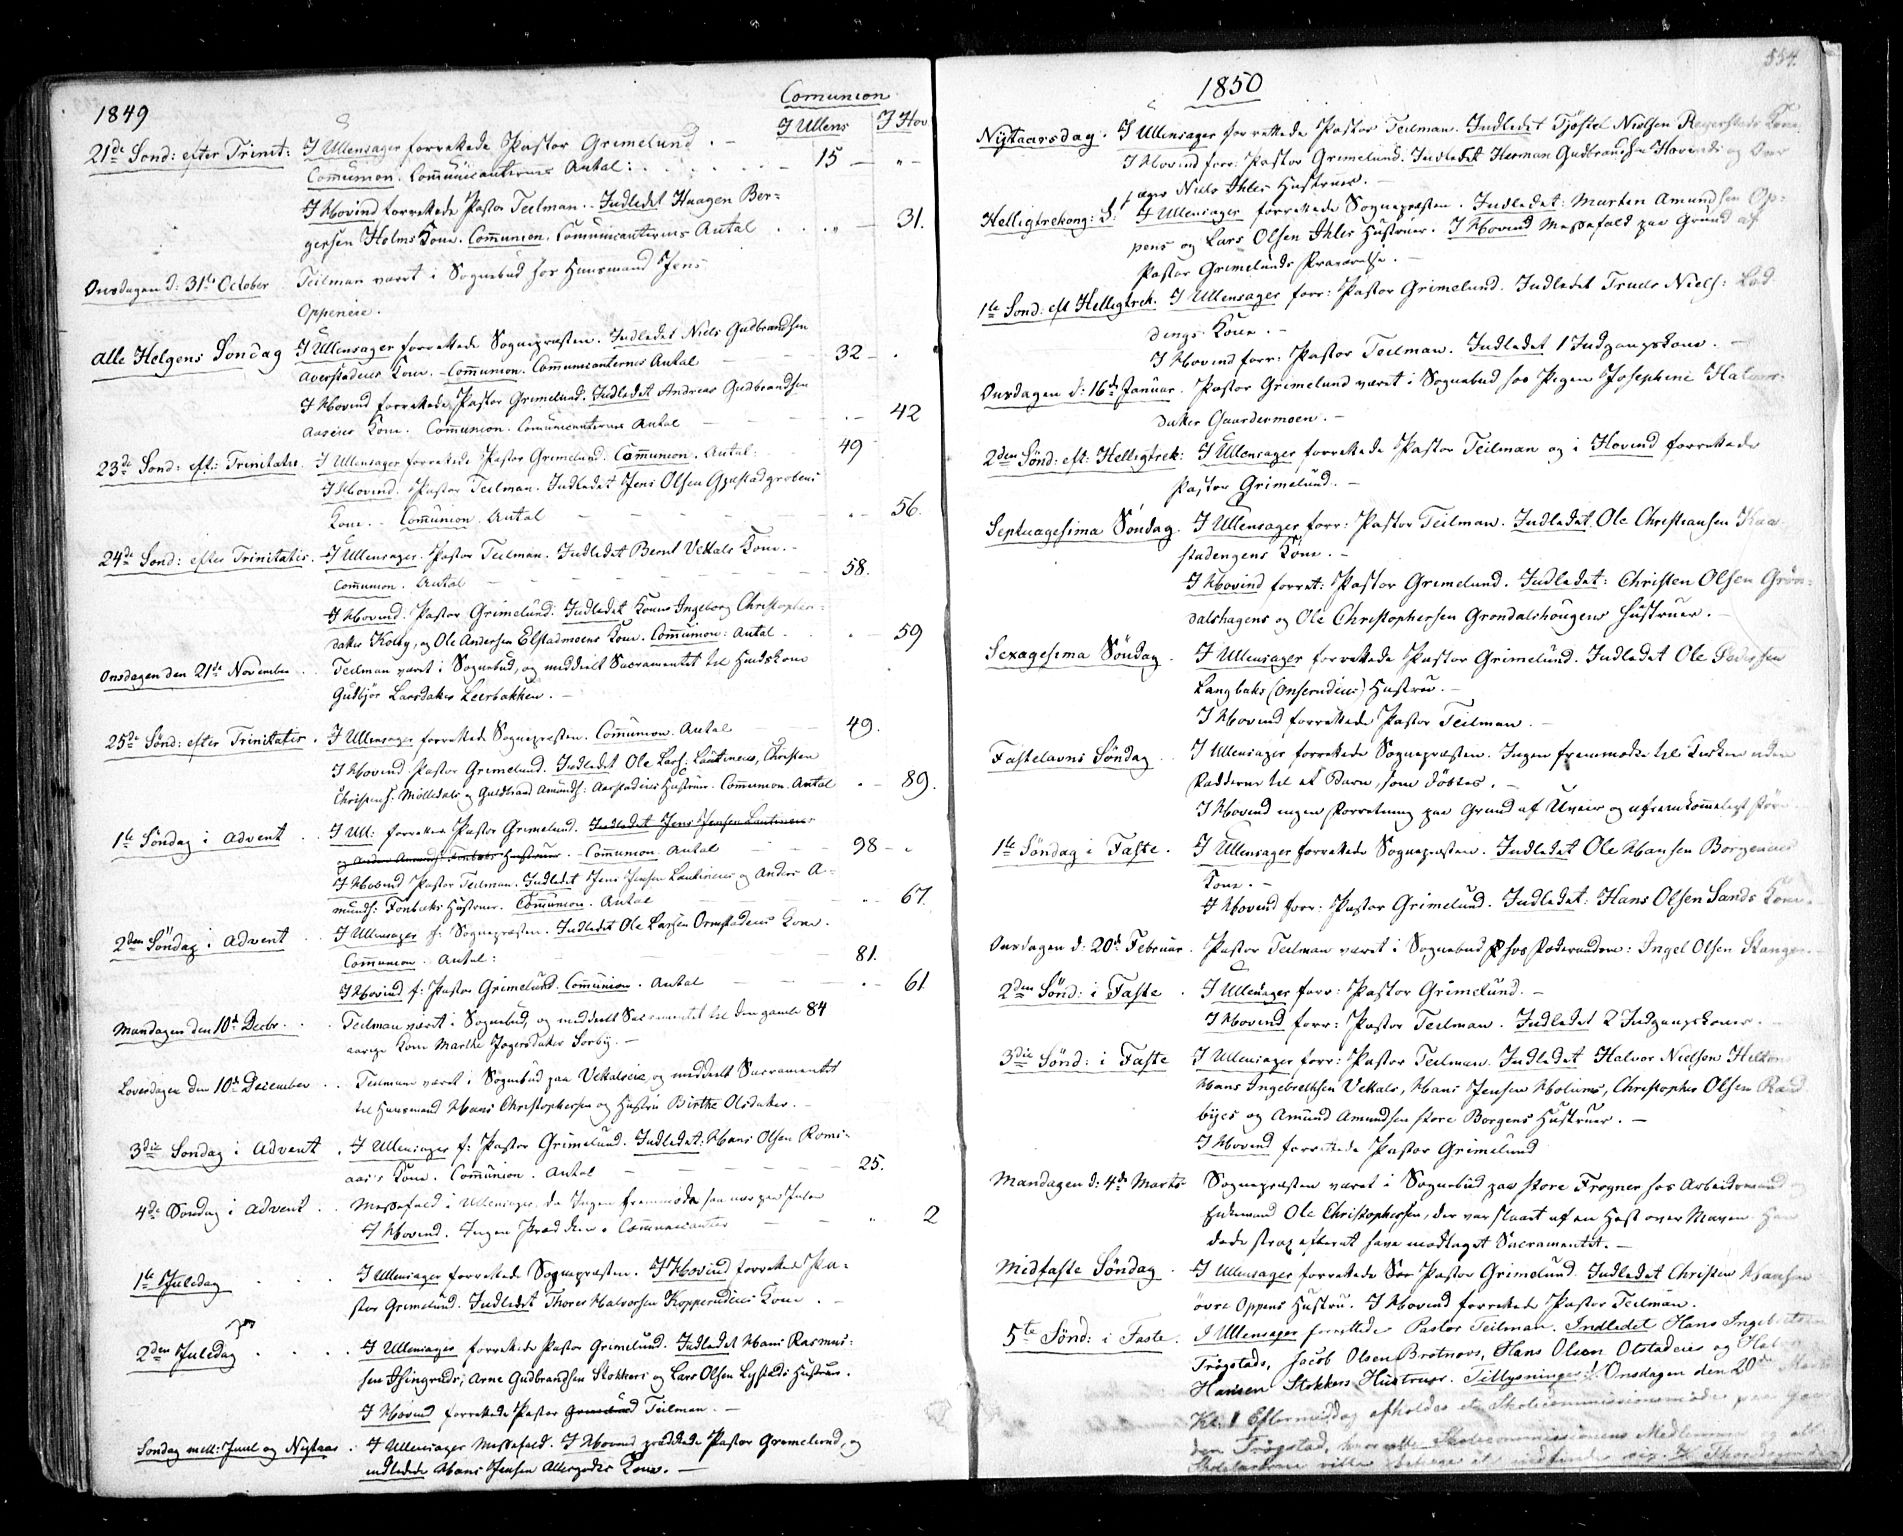 1849
Comunion
I Ullens I Hov
21de Sönd: efter Trinit: I Ullensager forrettede Pastor Grimelund. —
Comunion. Communicanternes Antal: 15 — „ —
I Hovind forrettede Pastor Teilman. Indledet Haagen Ber-
gersen Holms Kone. Communion. Communicanternes Antal „ — 31.
Onsdagen d: 31te October Teilman været i Sognebud hos Huusmand Jens
Oppeneie.
Alle Helgens Söndag I Ullensager forrettede Sognepræsten. Indledet Niels Gudbrandsen
Averstadeies Kone. — Communion. Communicanternes Antal — 32 —
I Hovind forrettede Pastor Grimelund. Indledet Andreas Gudbrandsen
Aaseies Kone. Communion. Comunicanternes Antal — 42
23de Sönd: eft: Trinitatis. I Ullensager forrettede Pastor Grimelund. Communion. Antal: 49
I Hovind. Pastor Teilman. Indledet Jens Olsen Gjestadgrobens
Kone. — Communion. Antal — 56.
24de Sönd: efter Trinitatis. I Ullensager. Pastor Teilman. Indledet Bernt Vekals Kone. —
Communion. Antal — 58.
I Hovind. Pastor Grimelund. Indledet Konen Ingeborg Christopher-
datter Kolby, og Ole Andersen Elstadmoens Kone. Communion: Antal — 59
Onsdagen den 21de November Teilman været i Sognebud, og meddeelt Sacramentet til Huuskone
Gudbjör Larsdatter Leerbakken. —
25de Sönd: efter Trinitatis. I Ullensager forrettede Sognepræsten. Communion. Antal — 49.
I Hovind Pastor Grimelund. Indledet Ole Lars: Lautineies, Christen
Christens: Mölledals og Guldbrand Amunds: Aarstadeies Hustruer. Communion. Antal — 89.
1te Söndag i Advent I Ull: forrettede Pastor Grimelund. Indledet Jens Jensen Lautineies
og Anders Amunds: Fonbæks Hustruer. Communion. Antal — 98 — „
I Hovind Pastor Teilman. Indledet Jens Jensen Lautineies og Anders A-
munds: Fonbæks Hustruer. Communion. Antal — 67.
2den Söndag i Advent I Ullensager f: Sognepræsten. Indledet Ole Larsen Ormstadeies Kone.
Communion. Antal: — 81.
I Hovind f: Pastor Grimelund. Communion. Antal — 61
Mandagen den 10de Decbr. Teilman været i Sognebud, og meddeelt Sacramentet til den gamle 84
aarige Kone Marthe Jogersdatter Sorby. —
Löverdagen den 10de December Teilman været i Sognebud paa Vekalseie, og meddeelt Sacramentet
til Huusmand Hans Christophersen og Hustru Birthe Olsdatter. —
3die Söndag i Advent. I Ullensager f: Pastor Grimelund. Indledet: Hans Olsen Roms-
aas's Kone. Communion. Antal — 25.
4de Söndag i Advent Messefald i Ullensager, da Ingen fremmödte saa nær paa Julen
I Hovind. Ingen Prædiken. Communicanter — 2
1te Juledag I Ullensager forrettede Sognepræsten. I Hovind forrettede Pa-
stor Grimelund. Indledet Thores Halvorsen Kopperudeies Kone. —
2den Juledag I Ullensager forrettede Pastor Grimelund. Indledet Hans Rasmus-
sen Isingruds, Arne Gudbrandsen Stokkers og Lars Olsen Lystads Hustruer.
I Hovind forrettede Pastor Grimelund Teilman. —
Söndag mell: Juul og Nytaar. I Ullensager Messefald. I Hovind prædikede Pastor Grimelund, og
indledede Hans Jensen Allergodts Kone. —
554.
1850
Nytaarsdag. I Ullensager forrettede Pastor Teilman. Indledet Tjöstel Nielsen Kone,
I Hovind forr: Pastor Grimelund. Indledet Herman Gudbrandsen Hovinds og
Niels Ihles Hustruer. —
Helligtrekong: S: I Ullensager forrettede Sognepræsten. Indledet: Morten Amundsen Op-
pens og Lars Olsen Ihles Hustruer. I Hovind Messefald paa Grund af
Pastor Grimelunds Fraværelse. —
1te Sönd: eft Helligtrek. I Ullensager forr: Pastor Grimelund. Indledet Truls Niels: Lod
dings Kone. —
I Hovind forr: Pastor Teilman. Indledet 1 Indgangskone. —
Onsdagen d: 16de Januar. Pastor Grimelund været i Sognebud hos Pigen Josephine Halvors-
datter Gaardermoen. —
2den Sönd: eft: Helligtrek: I Ullensager forrettede Pastor Teilman og i Hovind forrettede
Pastor Grimelund. —
Septuagesima Söndag. I Ullensager forr: Pastor Teilman. Indledet Ole Christiansen Kaa-
stadengens Kone. —
I Hovind forret: Pastor Grimelund. Indledet: Christen Olsen Grön-
dalshagens og Ole Christophersen Grondalshougens Hustruer. —
Sexagesima Söndag. I Ullensager forrettede Pastor Grimelund. Indledet Ole Pedersen
Langbaks (Onserudeies) Hustru. —
I Hovind forrettede Pastor Teilman. —
Fastelavns Söndag I Ullensager forrettede Sognepræsten. Ingen fremmödte til Kirken uden
Fadderne til et Barn, som döbtes. —
I Hovind ingen Forretning paa Grund af Uveir og ufremkommeligt
1te Söndag i Faste. I Ullensager forrettede Sognepræsten. Indledet Ole Hansen Borgeneies
Kone. —
I Hovind forr: Pastor Grimelund. Indledet: Hans Olsen Sands Kone.
Onsdagen d: 20de Februar. Pastor Teilman været i Sognebud hos Ingel Olsen Stangen.
2den Sönd: i Faste. I Ullensager forr: Pastor Grimelund. —
I Hovind forr: Pastor Teilman. Indledet 2 Indgangskoner. —
3die Sönd: i Faste I Ullensager forr: Pastor Teilman. Indledet Halvor Nielsen Hilton
Hans Ingebrethsen Vekals, Hans Jensen Holums, Christopher Olsen Rand
byes og Amund Amundsen store Borgens Hustruer. —
I Hovind forrettede Pastor Grimelund
Mandagen d: 4de Marts Sognepræsten været i Sognebud paa store Frogner hos Arbeidsmand og
Enkemand Ole Christophersen, der var slaaet af en Hest over Maven. Han
döde strax efterat have modtaget Sacramentet. —
Midfaste Söndag. I Ullensager forrettede Pastor Grimelund. Indledet Christen Hansen
övre Oppens Hustru. I Hovind forrettede Pastor Teilman.
5te Sönd: i Faste. I Ullensager forrettede Pastor Teilman. Indledet Hans Ingebretsen
Trögstads, Jacob Olsen Brotnovs, Hans Olsen Olstadeies og Halvor
Hansen Stokkers Hustruer. Tillysninger: Onsdagen den 20de
Kl: 1 Eftermiddag afholdes et Skolecommissionsmöde paa Gaar-
den Trögstad, hvor alle Skolecommissionens Medlemmer og
Skolelærerne ville behage at indfinde sig.